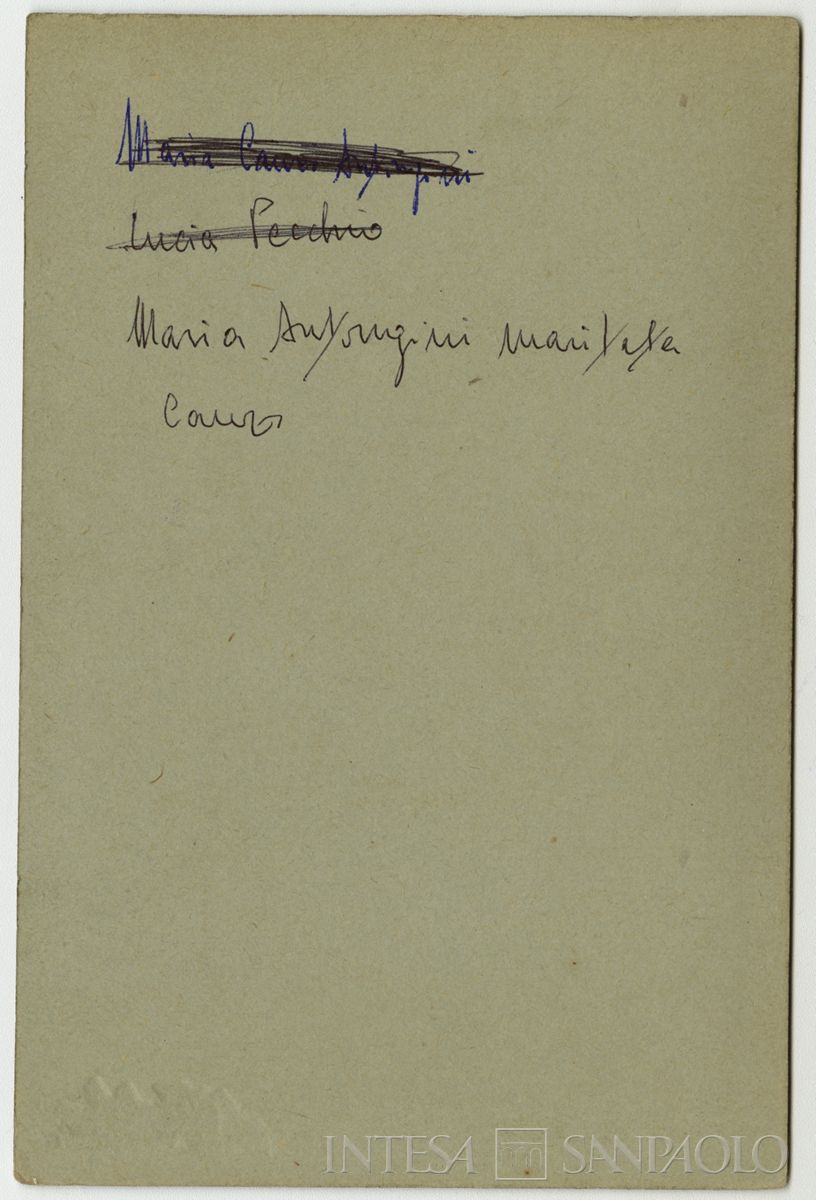 Maria Antongini
Lucia Pecchio
Maria Antongini maritata
INTESA SANPAOLO